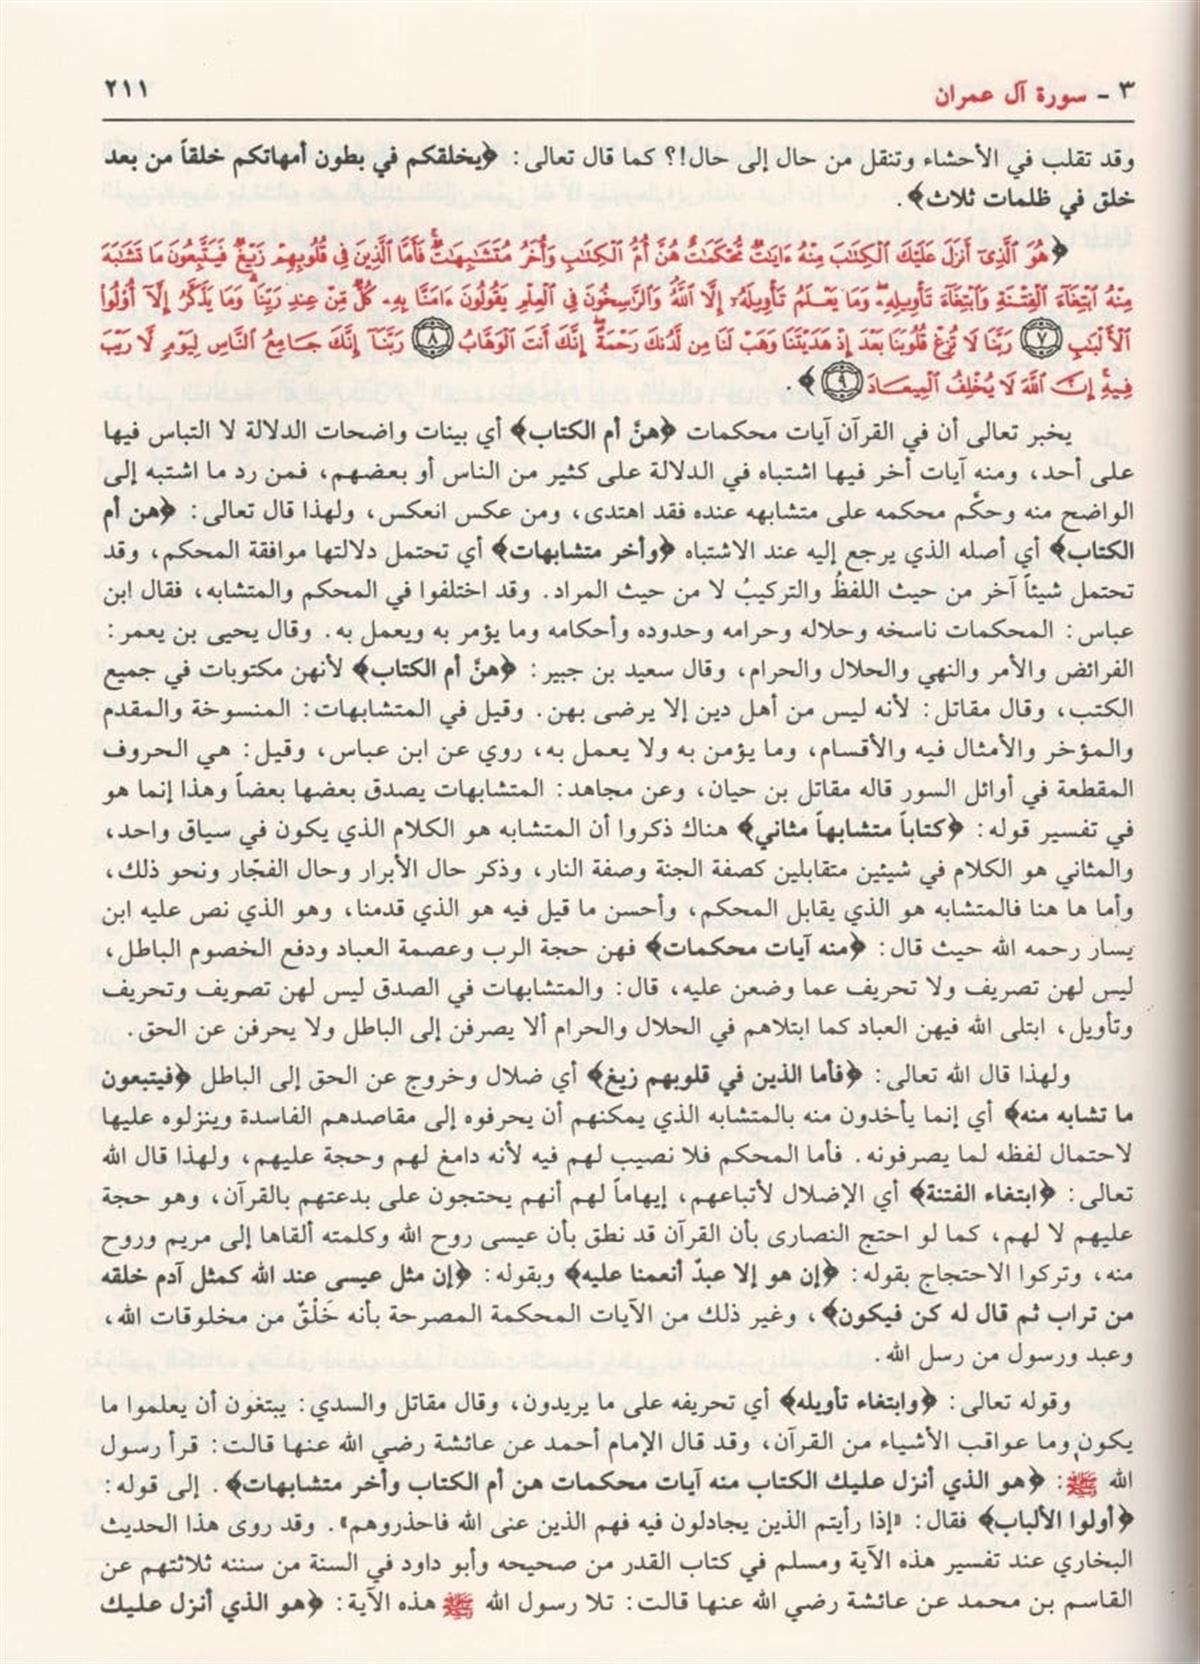 ٣ - سورة آل عمران ٢١١
وقد تقلب في الأحشاء وتنقل من حال إلى حال!؟ كما قال تعالى: ﴿يخلقكم في بطون أمهاتكم خلقاً من بعد
خلق في ظلمات ثلاث﴾.
﴿هُوَ ٱلَّذِىٓ أَنزَلَ عَلَيْكَ ٱلْكِتَٰبَ مِنْهُ ءَايَٰتٌ مُّحْكَمَٰتٌ هُنَّ أُمُّ ٱلْكِتَٰبِ وَأُخَرُ مُتَشَٰبِهَٰتٌ فَأَمَّا ٱلَّذِينَ فِى قُلُوبِهِمْ زَيْغٌ فَيَتَّبِعُونَ مَا تَشَٰبَهَ
مِنْهُ ٱبْتِغَآءَ ٱلْفِتْنَةِ وَٱبْتِغَآءَ تَأْوِيلِهِۦ وَمَا يَعْلَمُ تَأْوِيلَهُۥٓ إِلَّا ٱللَّهُ وَٱلرَّٰسِخُونَ فِى ٱلْعِلْمِ يَقُولُونَ ءَامَنَّا بِهِۦ كُلٌّ مِّنْ عِندِ رَبِّنَا وَمَا يَذَّكَّرُ إِلَّآ أُو۟لُوا۟
ٱلْأَلْبَٰبِ ٧ رَبَّنَا لَا تُزِغْ قُلُوبَنَا بَعْدَ إِذْ هَدَيْتَنَا وَهَبْ لَنَا مِن لَّدُنكَ رَحْمَةً إِنَّكَ أَنتَ ٱلْوَهَّابُ ٨ رَبَّنَآ إِنَّكَ جَامِعُ ٱلنَّاسِ لِيَوْمٍ لَّا رَيْبَ
فِيهِ إِنَّ ٱللَّهَ لَا يُخْلِفُ ٱلْمِيعَادَ ٩﴾.
يخبر تعالى أن في القرآن آيات محكمات ﴿هنَّ أم الكتاب﴾ أي بينات واضحات الدلالة لا التباس فيها
على أحد، ومنه آيات أخر فيها اشتباه في الدلالة على كثير من الناس أو بعضهم، فمن رد ما اشتبه إلى
الواضح منه وحكَّم محكمه على متشابهه عنده فقد اهتدى، ومن عكس انعكس، ولهذا قال تعالى: ﴿هن أم
الكتاب﴾ أي أصله الذي يرجع إليه عند الاشتباه ﴿وأخر متشابهات﴾ أي تحتمل دلالتها موافقة المحكم، وقد
تحتمل شيئاً آخر من حيث اللفظُ والتركيبُ لا من حيث المراد. وقد اختلفوا في المحكم والمتشابه، فقال ابن
عباس: المحكمات ناسخه وحلاله وحرامه وحدوده وأحكامه وما يؤمر به ويعمل به. وقال يحيى بن يعمر:
الفرائض والأمر والنهي والحلال والحرام، وقال سعيد بن جبير: ﴿هنَّ أم الكتاب﴾ لأنهن مكتوبات في جميع
الكتب، وقال مقاتل: لأنه ليس من أهل دين إلا يرضى بهن. وقيل في المتشابهات: المنسوخة والمقدم
والمؤخر والأمثال فيه والأقسام، وما يؤمن به ولا يعمل به، روي عن ابن عباس، وقيل: هي الحروف
المقطعة في أوائل السور قاله مقاتل بن حيان، وعن مجاهد: المتشابهات يصدق بعضها بعضاً وهذا إنما هو
في تفسير قوله: ﴿كتاباً متشابهاً مثاني﴾ هناك ذكروا أن المتشابه هو الكلام الذي يكون في سياق واحد،
والمثاني هو الكلام في شيئين متقابلين كصفة الجنة وصفة النار، وذكر حال الأبرار وحال الفجّار ونحو ذلك،
وأما ها هنا فالمتشابه هو الذي يقابل المحكم، وأحسن ما قيل فيه هو الذي قدمنا، وهو الذي نص عليه ابن
يسار رحمه الله حيث قال: ﴿منه آيات محكمات﴾ فهن حجة الرب وعصمة العباد ودفع الخصوم الباطل،
ليس لهن تصريف ولا تحريف عما وضعن عليه، قال: والمتشابهات في الصدق ليس لهن تصريف وتحريف
وتأويل، ابتلى الله فيهن العباد كما ابتلاهم في الحلال والحرام ألا يصرفن إلى الباطل ولا يحرفن عن الحق.
ولهذا قال الله تعالى: ﴿فأما الذين في قلوبهم زيغ﴾ أي ضلال وخروج عن الحق إلى الباطل ﴿فيتبعون
ما تشابه منه﴾ أي إنما يأخدون منه بالمتشابه الذي يمكنهم أن يحرفوه إلى مقاصدهم الفاسدة وينزلوه عليها
لاحتمال لفظه لما يصرفونه. فأما المحكم فلا نصيب لهم فيه لأنه دامغ لهم وحجة عليهم، ولهذا قال الله
تعالى: ﴿ابتغاء الفتنة﴾ أي الإضلال لأتباعهم، إيهاماً لهم أنهم يحتجون على بدعتهم بالقرآن، وهو حجة
عليهم لا لهم، كما لو احتج النصارى بأن القرآن قد نطق بأن عيسى روح الله وكلمته ألقاها إلى مريم وروح
منه، وتركوا الاحتجاج بقوله: ﴿إن هو إلا عبدٌ أنعمنا عليه﴾ وبقوله: ﴿إن مثل عيسى عند الله كمثل آدم خلقه
من تراب ثم قال له كن فيكون﴾، وغير ذلك من الآيات المحكمة المصرحة بأنه خَلْقٌ من مخلوقات الله،
وعبد ورسول من رسل الله.
وقوله تعالى: ﴿وابتغاء تأويله﴾ أي تحريفه على ما يريدون، وقال مقاتل والسدي: يبتغون أن يعلموا ما
يكون وما عواقب الأشياء من القرآن، وقد قال الإمام أحمد عن عائشة رضي الله عنها قالت: قرأ رسول
الله ﷺ: ﴿هو الذي أنزل عليك الكتاب منه آيات محكمات هن أم الكتاب وأخر متشابهات﴾. إلى قوله:
﴿أولوا الألباب﴾ فقال: «إذا رأيتم الذين يجادلون فيه فهم الذين عنى الله فاحذروهم». وقد روى هذا الحديث
البخاري عند تفسير هذه الآية ومسلم في كتاب القدر من صحيحه وأبو داود في السنة من سننه ثلاثتهم عن
القاسم بن محمد عن عائشة رضي الله عنها قالت: تلا رسول الله ﷺ هذه الآية: ﴿هو الذي أنزل عليك